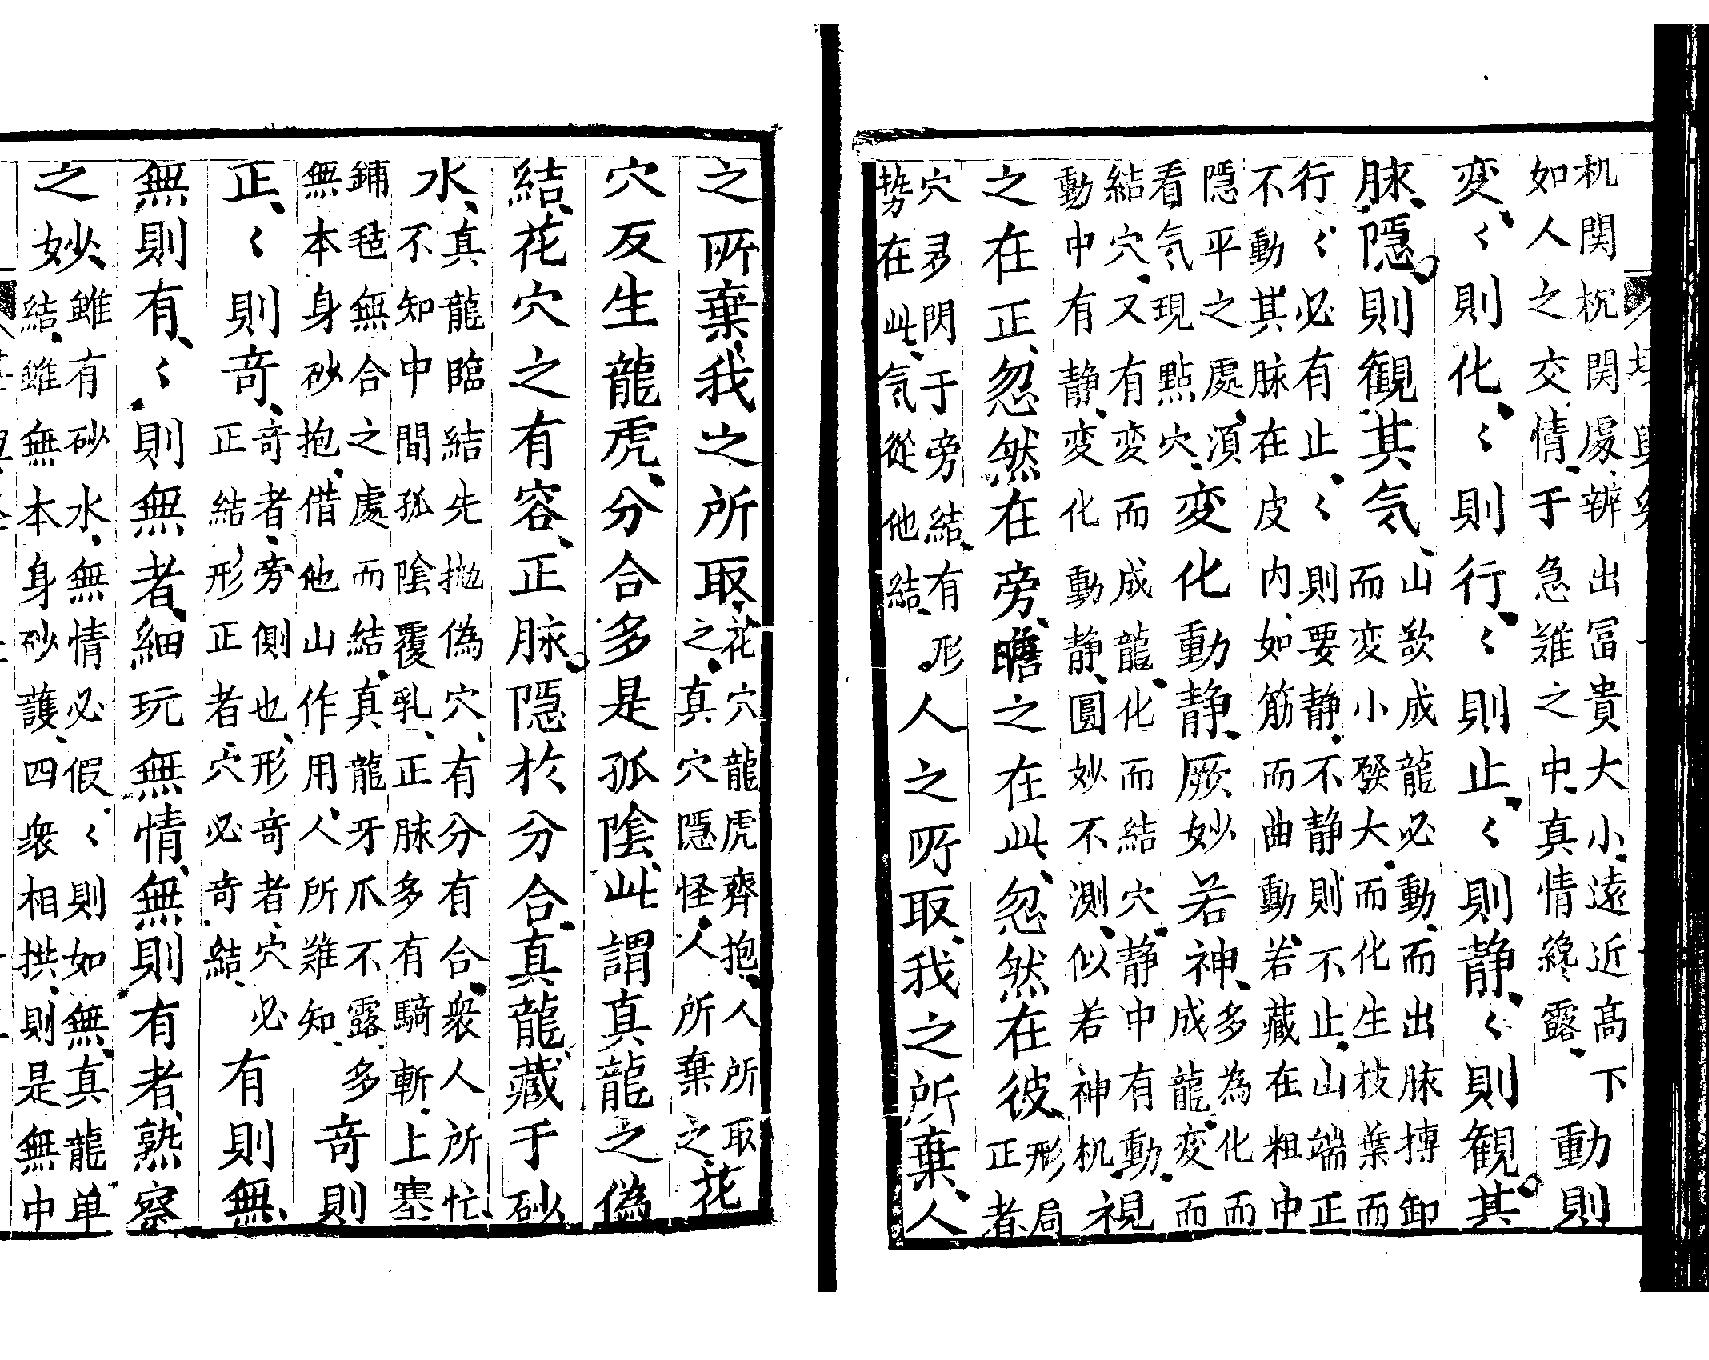 机関枕関處辨出冨貴大小遠近髙下
如人之交情于急难之中真情終露
動則
変〻則化〻則行〻則止〻則静〻則観其
脉隠則觀其気
山欲成龍必動而出脉摶卸
而变小発大而化生枝葉而
行〻必有止〻則要静不静則不止山端正
不動其脉在皮内如筋而曲動若藏在粗中
隠平之處湏
看気現點穴
变化動静厥妙若神
多為化而
成龍变而
結穴又有变而成龍化而結穴静中有動
動中有静变化動静圓妙不測似若神机
視
之在正忽然在旁瞻之在此忽然在彼
形局
正者
穴多閃于旁結有形
勢在此気從他結
人之所取我之所棄人
之所棄我之所取
花穴龍虎齊抱人所取
之真穴隠怪人所棄之
花
穴反生龍虎分合多是孤陰此謂真龍之偽
結花穴之有容正脉隠於分合真龍藏于砂
水
真龍臨結先抛偽穴有分有合衆人所忙
不知中間孤陰覆乳正脉多有騎斬上塞
鋪毡無合之處而結真龍牙爪不露多
無本身砂抱借他山作用人所难知
奇則
正〻則奇
奇者旁側也形奇者穴必
正結形正者穴必奇結
有則無
無則有〻則無者細玩無情無則有者熟察
之妙
雖有砂水無情必假〻則如無真龍单
結雖無本身砂護四衆相拱則是無中